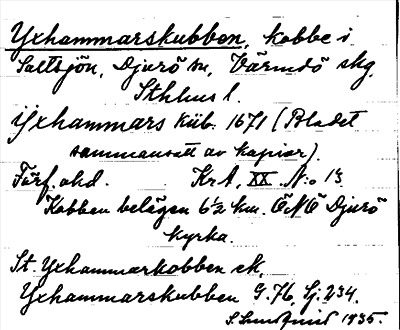 Yxhammarskubben, kobbe i
Saltsjön, Djurö sn, Värmdö skg,
Sthlms l.
Yxhammars kub. 1671 (Bladet
sammansatt av kopior).
Förf. okd. KrA, XX. N:o 13
Kobben belägen 6½ km. ÖNÖ Djurö
kyrka.
St. Yxhammarkobben ek,
Yxhammarskubben G.76, Sj. 234.
S. Lundqvist 1935.